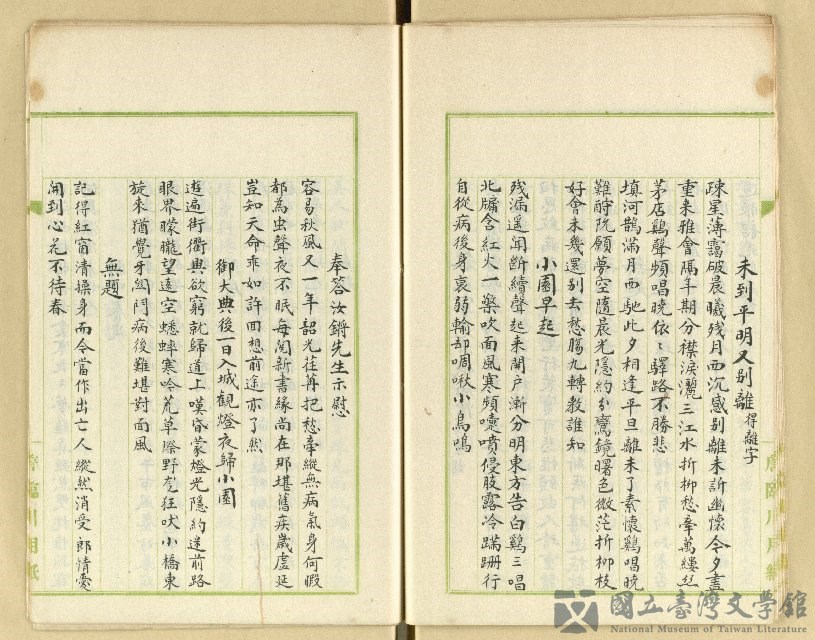 未到平明又別離得離字
疎星薄靄破晨曦残月西沉感別離未訴幽懷令夕盡
重来雅會隔年期分襟淚灑三江水折柳愁牽萬縷絲
茅店鷄聲頻唱曉依々驛路不勝悲
填河鵲滿月西馳此夕相逢平旦離未了素懷鷄唱曉
難酧阮願夢空隨晨光隱約分鸞鏡曙色微茫折柳枝
好會未幾還別去愁膓九轉教誰知
小園早起
残漏遥聞断續聲起来開户漸分明東方告白鷄三唱
北牖含紅火一檠吹面風寒頻嚏噴侵肢露冷蹒跚行
自從病後身衰弱輸却啁啾小鳥鳴
奉答汝鏘先生示慰
容易秋風又一年韶光荏苒把愁牽縱無病氣身何暇
都為虫聲夜不眠每閱新書緣尚在那堪舊疾歲虛延
豈知天命乖如許回想前途亦了然
御大典後一日入城觀燈夜歸小園
遊遍街衢興欲窮就歸道上嘆昏蒙燈光隱約迷前路
眼界朦朧望遠空蟋蟀寒吟荒草際野尨狂吠小橋東
旋来猶覺牙闗鬥病後難堪對面風
無題
記得紅窗清操身而今當作出亡人縱然消受郎情愛
開到心花不待春
摩臨川用紙
國立臺灣文學館
National Museum of Taiwan Literature